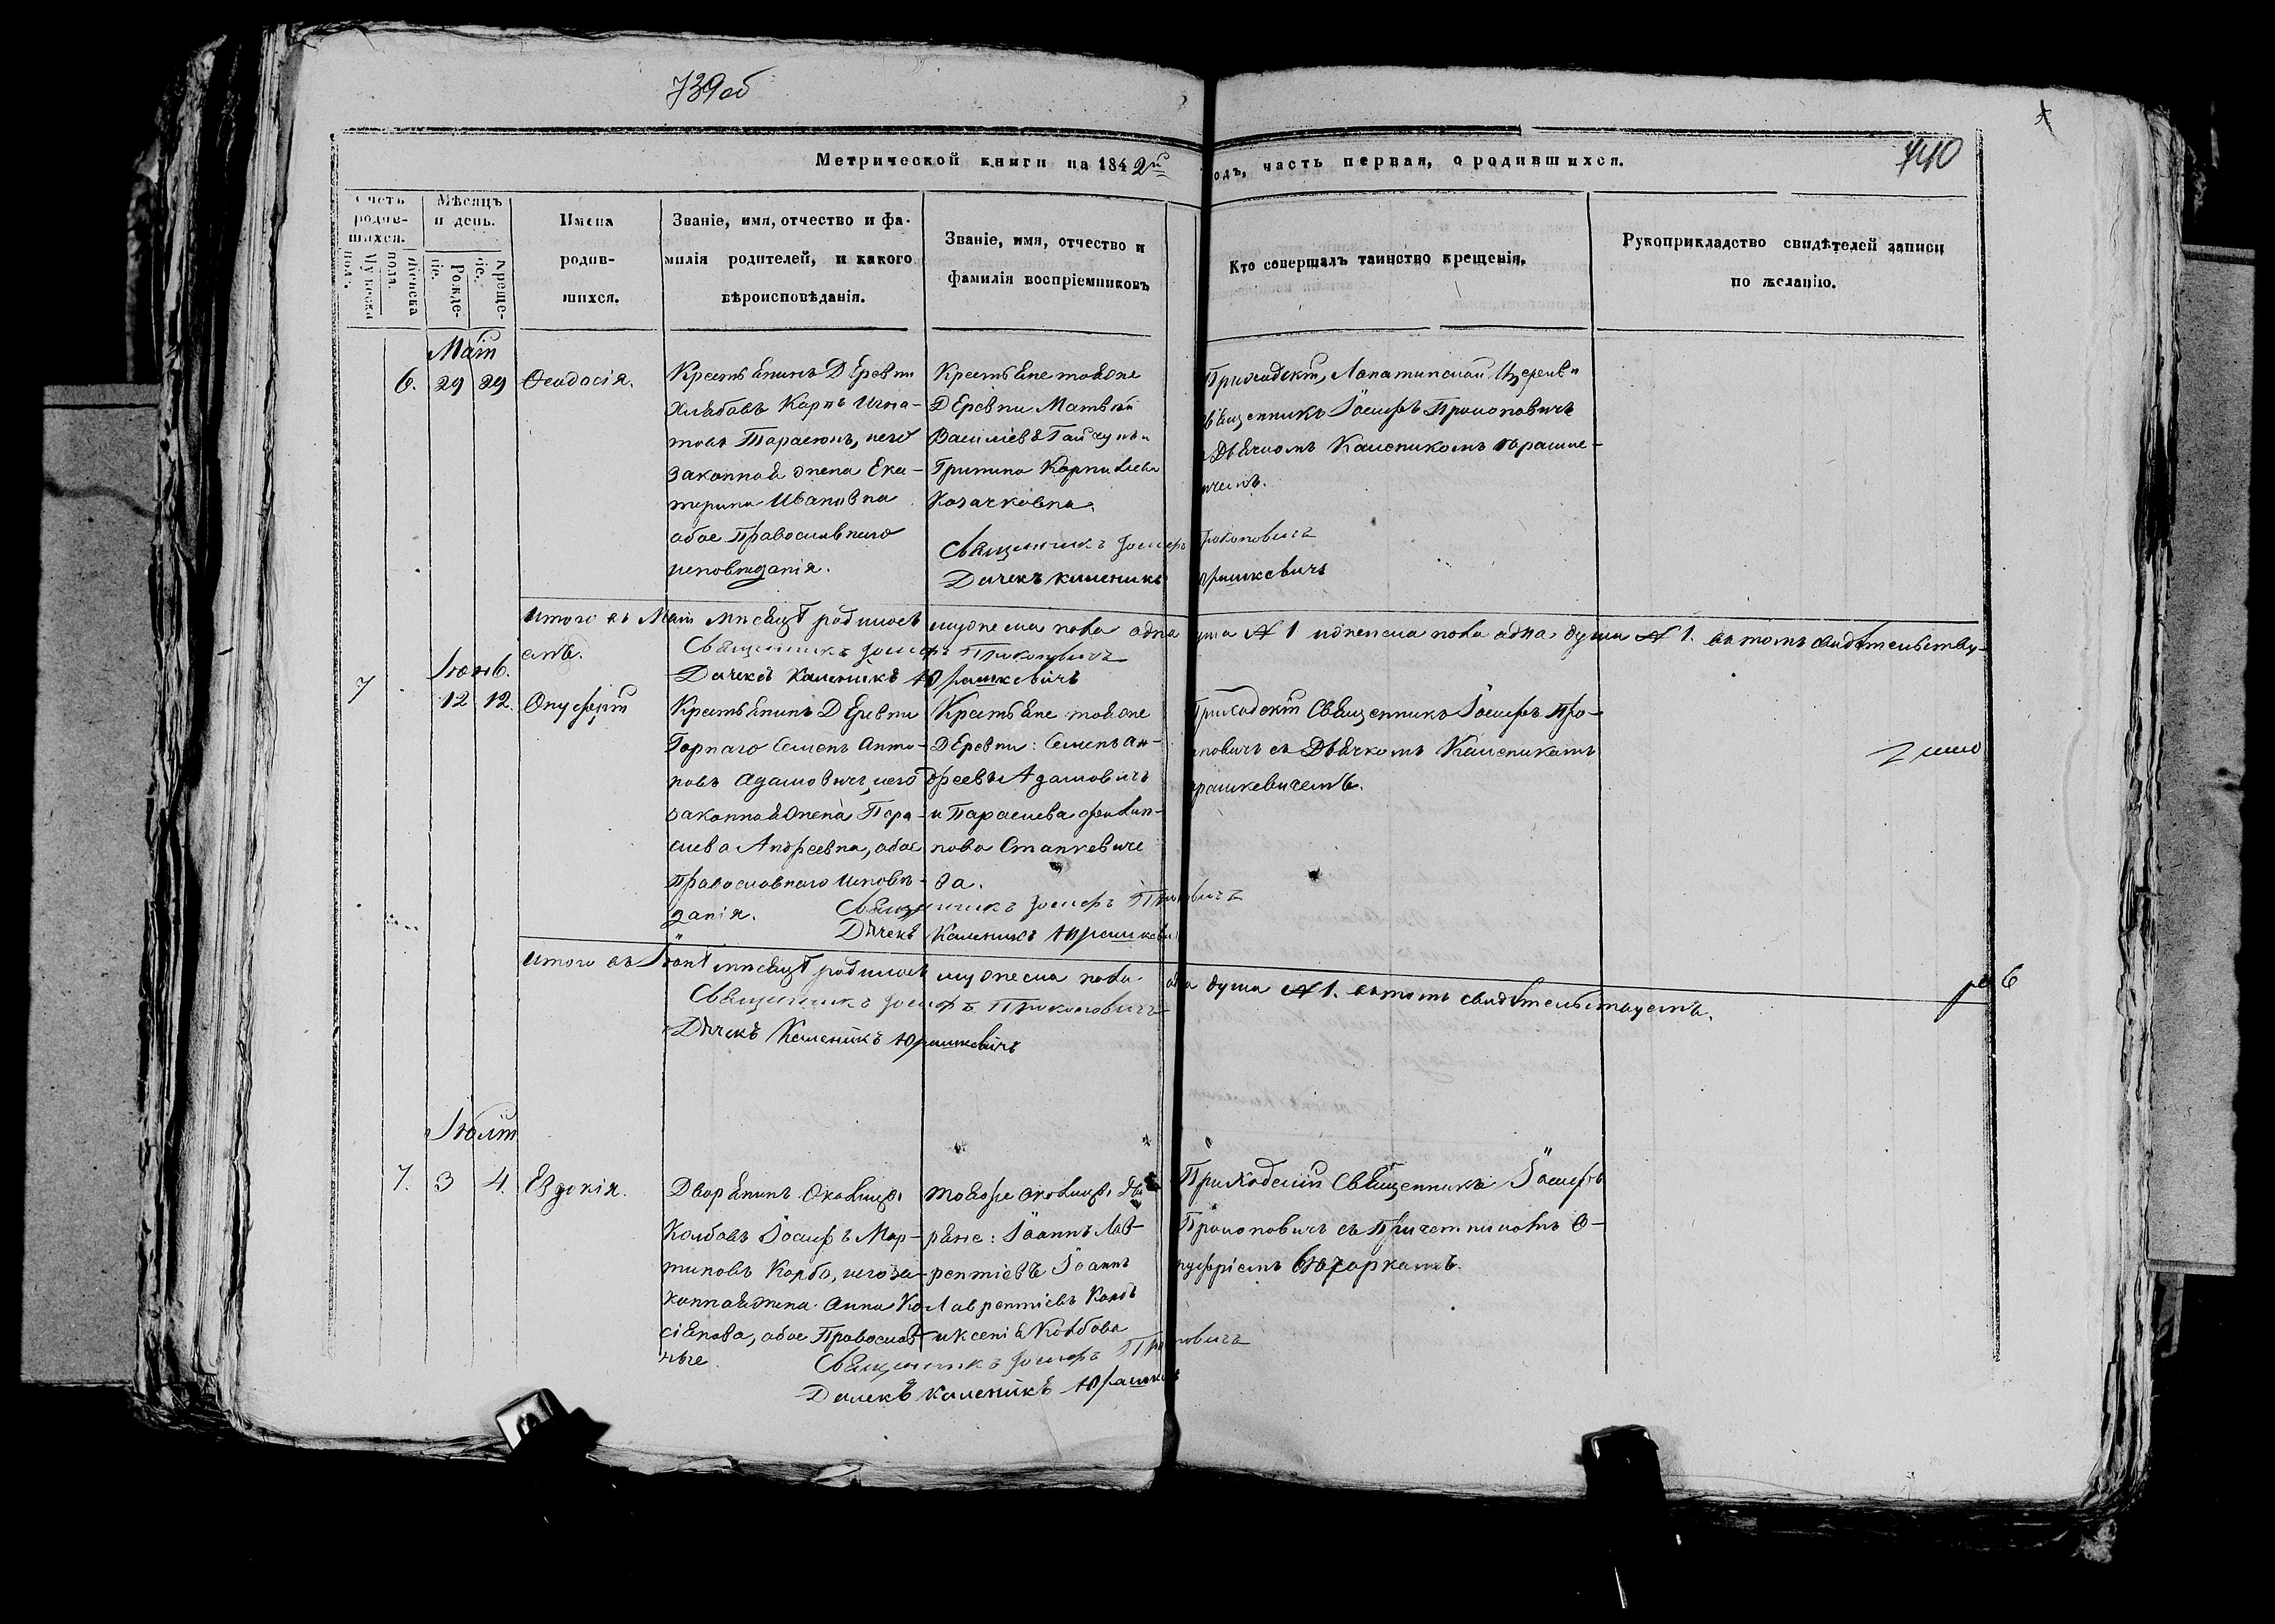 739об
740
Метрической книги на 1842й
одъ, часть первая, о родившихся.
Счетъ родив-
шихся.
Мужеска пол.
Женска пола.
Мѣсяцъ
и день.
Рожде-
ніе.
Креще-
ніе.
Имена
родив-
шихся.
Званіе, имя, отчество и фа-
милія родителей, и какого
вѣроисповѣданія.
Званіе, имя, отчество и
фамилія воспріемниковъ
Кто совершалъ таинство крещенія.
Рукоприкладство свидѣтелей записи
по желанію.
Май
6. 29 29 Ѳеодосія.
Крестьянинъ Деревни
Хлябовъ Карпъ Игна-
товъ Тарасюнъ, и его
законная жена Ека-
терина Ивановна
обое Православнаго
исповѣданія.
Крестьяне тояже
Деревни Матвѣй
Василіевъ и
Карпилова
Козачковна.
Приходскій, Лопатинской Церкви
священникъ Іосифъ Прокоповичъ
Дьячкомъ Калеником Юрашке-
вичемъ.
Священникъ Іосифъ Прокоповичъ
Дячекъ Каленикъ Юрашкевичъ
Итого въ Маи мнсяцѣ родилось мужеска пола одна душа № 1 и женска пола одна душа № 1. въ томъ свидѣтельству-
емъ.
Священникъ Іосифъ Прокоповичъ
Дячекъ Каленикъ Юрашкевичъ
Іюнь.
7 12 12. Онуфрій
Крестьянинъ Деревни
Горнаго Семенъ Анто-
новъ Адамовичъ, и его
законная жена Пара-
сиева Андреевна, обое
Православнаго исповѣ-
данія.
Крестьяне тояже
Деревни: Семенъ Ан-
дреевъ Адамовичъ
и Парасиева Филип-
пова Станкевиче-
ва.
Приходскій Священникъ Іосифъ Про-
поповичъ съ Дьячкомъ Калеником
рашкевичемъ.
Священникъ Іосифъ Прокоповичъ
Дячекъ Каленикъ Юрашкеви
Итого въ Іюнѣ мнсяцѣ родилось мужеска пола одна душа № 1. въ томъ свидѣтельствуемъ.
Священникъ Іосифъ Прокоповичъ
Дячекъ Каленикъ Юрашкевичъ
Іюлій
7. 3 4. Евдокія.
Дворянинъ Околицы
Колбовъ Іосифъ Мар-
тиновъ Корбо, и его за-
конная жена Анна Ка-
сіянова, обое Православ-
ные
тояже околицы Дво-
ряне: Іоаннъ Лав-
рентіевъ Іоаннъ
Лаврентіевъ Колбъ
и Ксенія Колбова
Приходскій Священникъ Іосифъ
Прокоповичъ съ Причетникомъ О-
нуфріемъ
Священникъ Іосифъ Прокоповичъ
Дячекъ Каленикъ Юрашкев